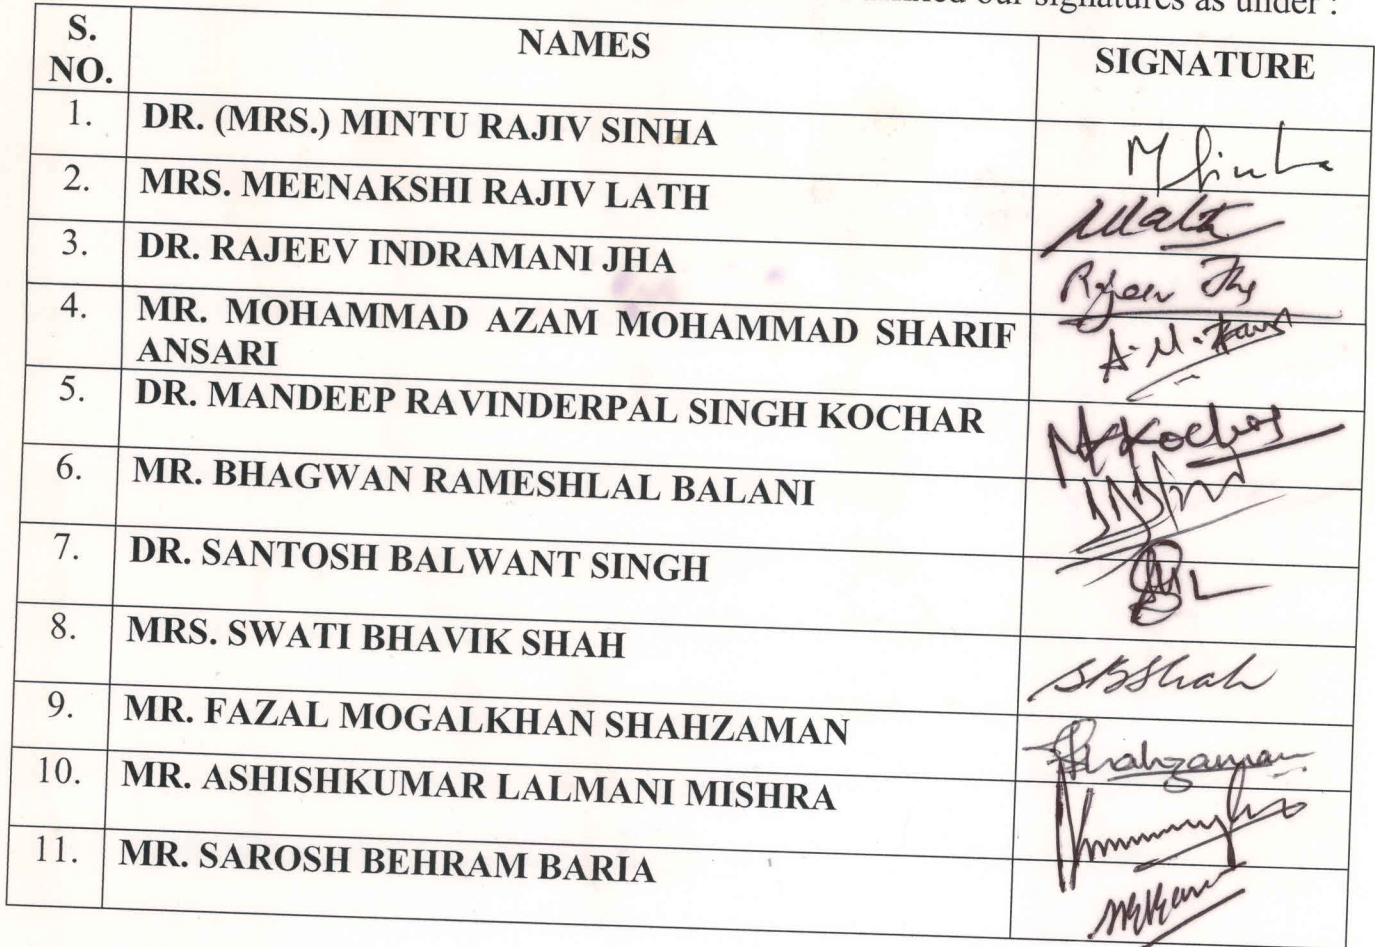 our signatures as under :
S. NO. NAMES SIGNATURE
1. DR. (MRS.) MINTU RAJIV SINHA M Sinha
2. MRS. MEENAKSHI RAJIV LATH
3. DR. RAJEEV INDRAMANI JHA Rajeev Jha
4. MR. MOHAMMAD AZAM MOHAMMAD SHARIF
ANSARI
5. DR. MANDEEP RAVINDERPAL SINGH KOCHAR MKKochar
6. MR. BHAGWAN RAMESHLAL BALANI
7. DR. SANTOSH BALWANT SINGH
8. MRS. SWATI BHAVIK SHAH SBShah
9. MR. FAZAL MOGALKHAN SHAHZAMAN Shahzaman
10. MR. ASHISHKUMAR LALMANI MISHRA
11. MR. SAROSH BEHRAM BARIA